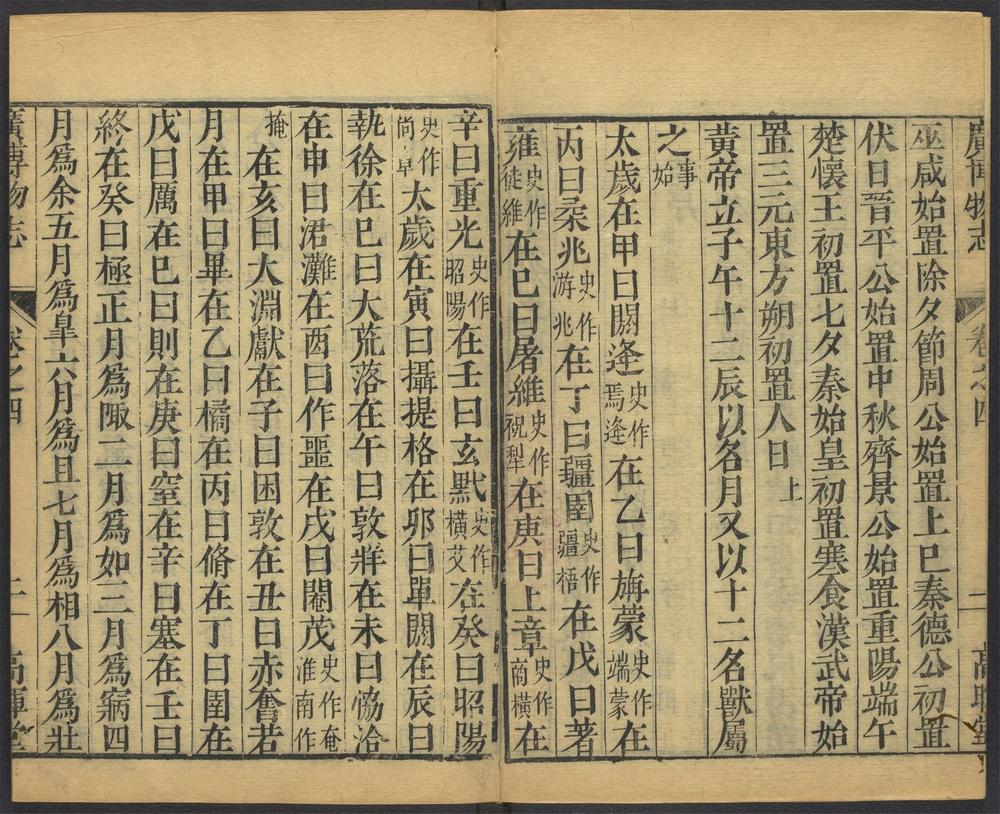 廣博物志 卷之四 二 高暉堂
巫咸始置除夕節周公始置上巳秦德公初置
伏日晉平公始置中秋齊景公始置重陽端午
楚懷王初置七夕秦始皇初置寒食漢武帝始
置三元東方朔初置人日上
黃帝立子午十二辰以名月又以十二名獸屬
之事始
太歲在甲曰閼逢史作焉逢在乙曰旃蒙史作端蒙在
丙曰柔兆史作游兆在丁曰疆圉史作疆梧在戊曰著
雍史作徒維在巳曰屠維史作祝犁在庚曰上章史作商橫在
辛曰重光史作昭陽在壬曰玄黓史作橫艾在癸曰昭陽
史作尚章太歲在寅曰攝提格在夘曰單閼在辰曰
執徐在巳曰大荒落在午曰敦牂在未曰恊洽
在申曰涒灘在酉曰作噩在戌曰閹茂史作奄淮南作
掩在亥曰大淵獻在子曰困敦在丑曰赤奮若
月在甲曰畢在乙曰橘在丙曰脩在丁曰圉在
戊曰厲在巳曰則在庚曰窒在辛曰塞在壬曰
終在癸曰極正月為陬二月為如三月為寎四
月為余五月為皐六月為且七月為相八月為壯
廣博物志 卷之四 二 高暉堂